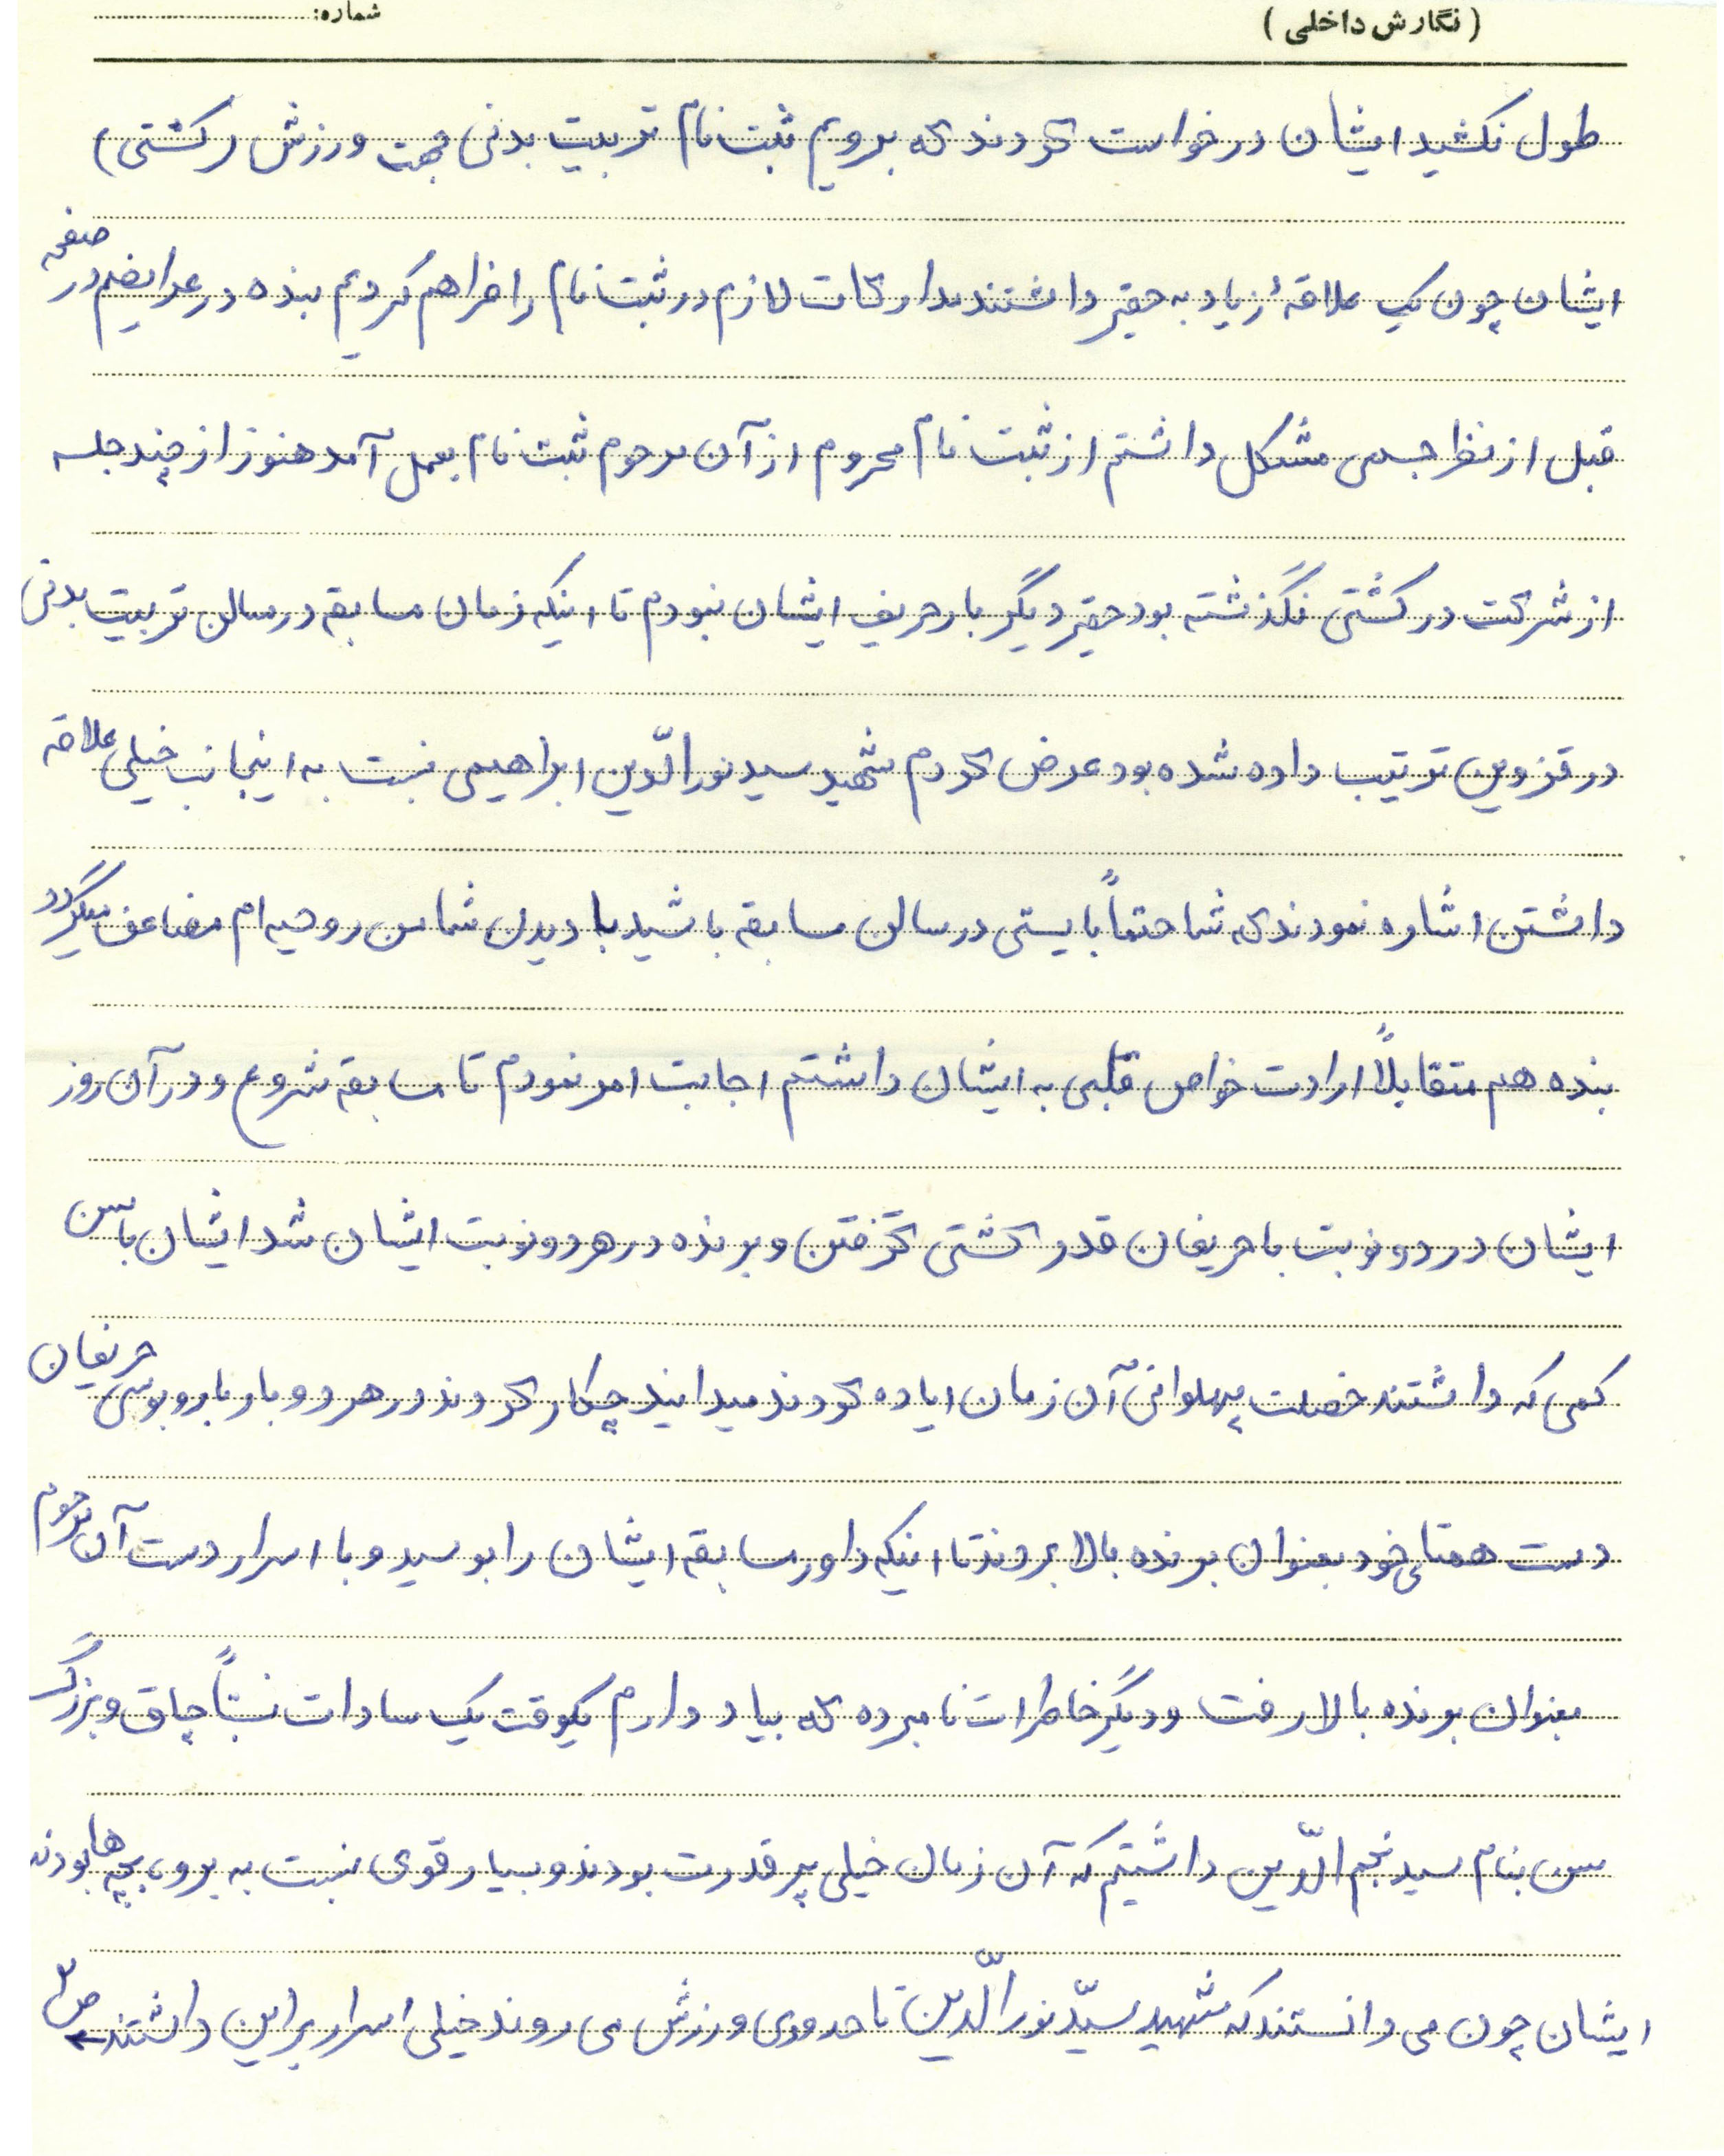 شماره:
( نگارش داخلی )
طول نکشید ایشان درخواست کردند که برویم ثبت نام تربیت بدنی جهت ورزش (کشتی)
ایشان چون یک علاقهٔ زیاد به حقیر داشتند مدارکات لازم در ثبت نام را فراهم کردیم بنده در عرایضم در صفحه
قبل از نظر جسمی مشکل داشتم از ثبت نام محروم از آن مرحوم ثبت نام بعمل آمد هنوز از چند جلسه
از شرکت در کشتی نگذشته بود حقیر دیگر بار حریف ایشان نبودم تا اینکه زمان مسابقه در سالن تربیت بدنی
در قزوین ترتیب داده شده بود عرض کردم شهید سید نورالدّین ابراهیمی نسبت به اینجانب خیلی علاقه
داشتن اشاره نمودند که شما حتماً بایستی در سالن مسابقه باشید با دیدن شما من روحیه ام مضاعف میگردد
بنده هم متقابلاً ارادت خواص قلبی به ایشان داشتم اجابت امر نمودم تا مسابقه شروع و در آن روز
ایشان در دو نوبت با حریفان قدر کشتی گرفتن و برنده در هر دو نوبت ایشان شد ایشان با سن
کمی که داشتند خصلت پهلوانی آن زمان ایاده کردند میدانید چکار کردند در هر دو بار با روبوسی حریفان
دست همتای خود بعنوان برنده بالا بردند تا اینکه داور مسابقه ایشان را بوسید و با اسرار دست آن مرحوم
بعنوان برنده بالا رفت و دیگر خاطرات نامبرده که بیاد دارم یکوقت یک سادات نسبتاً چاق و بزرگ
سن بنام سید نجم الدّین داشتیم که آن زمان خیلی پر قدرت بودند و بسیار قوی نسبت به برو بچه ها بودند
ایشان چون می دانستند که شهید سیّد نورالدّین تا حدودی ورزش می روند خیلی اسرار بر این داشتند ص۲